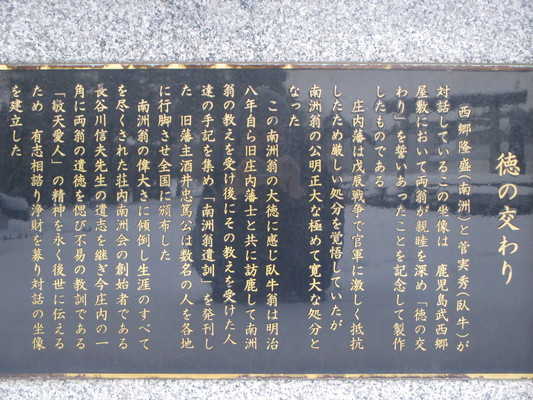 徳の交わり
西郷隆盛(南洲)と菅実秀(臥牛)が
対話しているこの坐像は 鹿児島武西郷
屋敷において両翁が親睦を深め「徳の交
わり」を誓いあったことを記念して製作
したものである
庄内藩は戊辰戦争で官軍に激しく抵抗
したため厳しい処分を覚悟していたが
南洲翁の公明正大な極めて寛大な処分と
なった
この南洲翁の大徳に感じ臥牛翁は明治
八年自ら旧庄内藩士と共に訪鹿して南洲
翁の教えを受け後にその教えを受けた人
達の手記を集め「南洲翁遺訓」を発刊し
た 旧藩主酒井忠篤公は数名の人を各地
に行脚させ全国に頒布した
南洲翁の偉大さに傾倒し生涯のすべて
を尽くされた荘内南洲会の創始者である
長谷川信夫先生の遺志を継ぎ今庄内の一
角に両翁の遺徳を偲び不易の教訓である
「敬天愛人」の精神を永く後世に伝える
ため 有志相諮り浄財を募り対話の坐像
を建立した